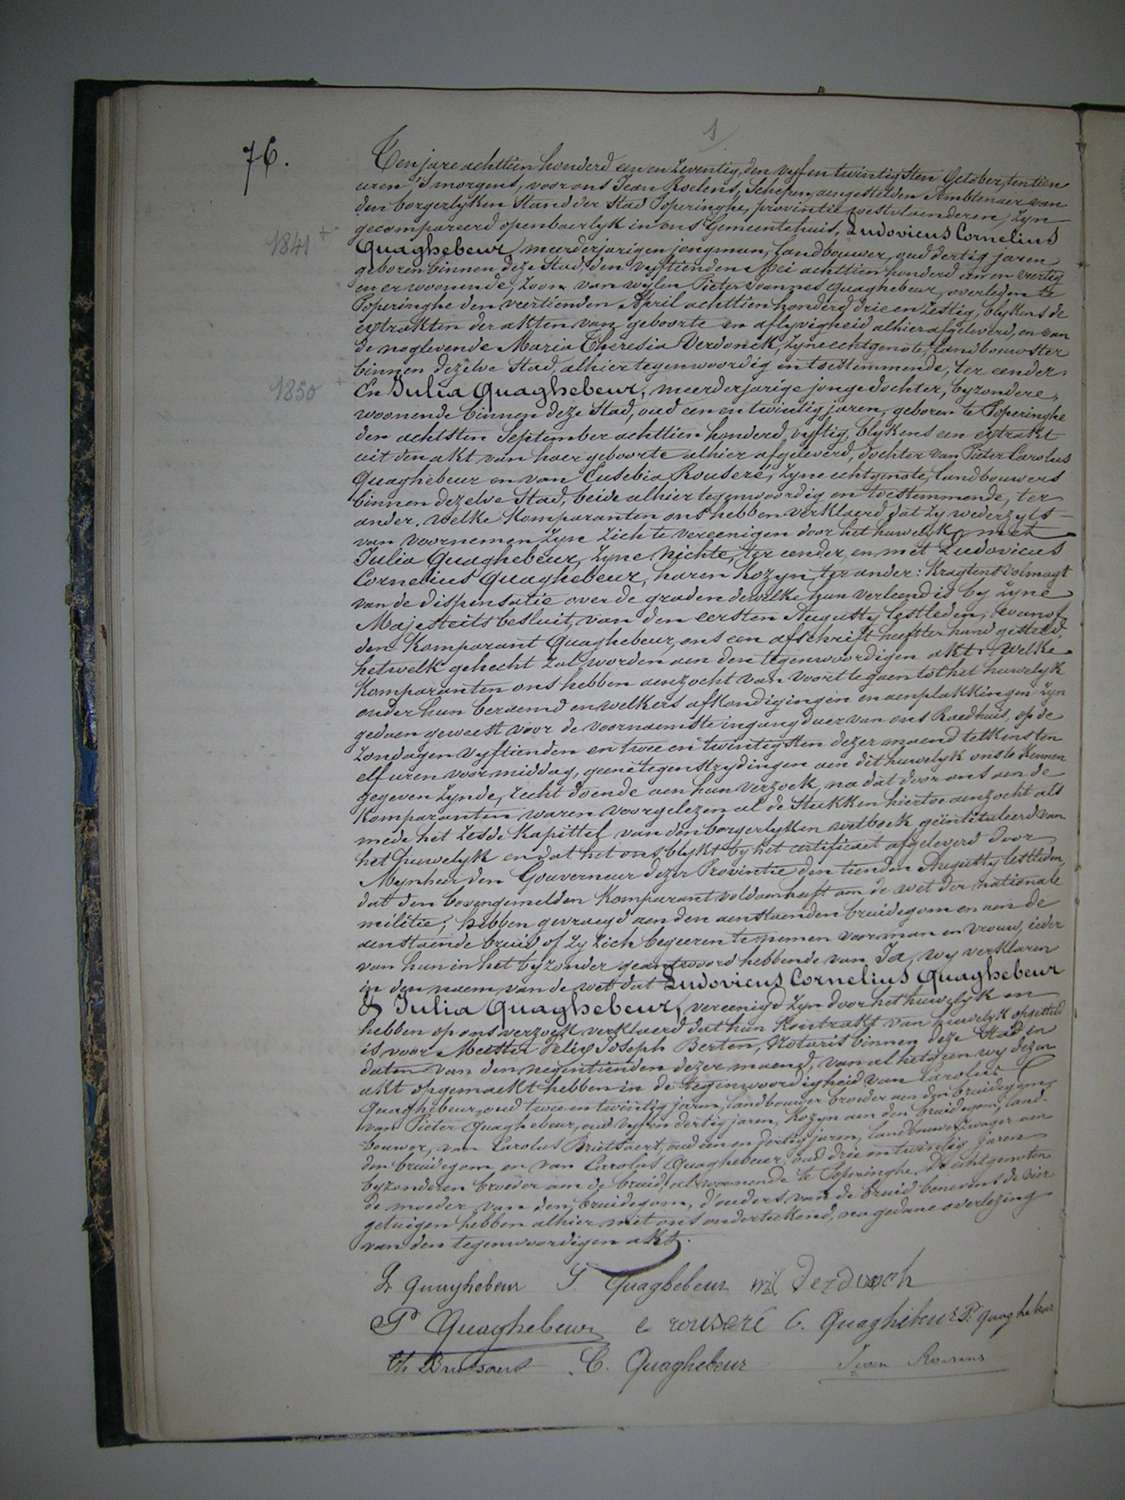 1
76.
Ten jare achttien honderd een en Zeventig, den vyf en twintigsten October, ten tien
uren 's morgens, voor ons Jean Roelens, Schepen, aengestelden Ambtenaer van
den borgerlyken Stand der Stad Poperinghe, provintie westvlaenderen, Zyn
gecompareerd openbaerlyk in ons Gemeentehuis, Ludovicus Cornelius
1841 +
Quaghebeur, meerderjarigen jongman, Landbouwer, oud dertig jaren,
geboren binnen deze Stad, den vyftienden Mei achttien honderd een en veertig
en er woonende, Zoon van wylen Pieter Joannes Quaghebeur, overleden te
Poperinghe den veertienden April achttien honderd drie en Zestig, blykens de
extrakten der akten van geboorte en aflyvigheid alhier afgeleverd, en van
de noglevende Maria Theresia Verdonck, Zyne echtgenote, Landbouwster
binnen dezelve Stad, alhier tegenwoordig en toestemmende, ter eender.
1850 +
En Julia Quaghebeur, meerderjarige jonge dochter, byzondere,
woonende binnen deze Stad, oud een en twintig jaren, geboren te Poperinghe
den achtsten September achttien honderd vyftig, blykens een extrakt
uit den akt van haer geboorte alhier afgeleverd, dochter van Pieter Carolus
Quaghebeur en van Eusebia Rouseré, Zyne echtgenote, Landbouwers
binnen dezelve Stad, beide alhier tegenwoordig en toestemmende, ter
ander. Welke Komparanten ons hebben verklaerd dat Zy wederzyds
van voornemen Zyn Zich te vereenigen door het huwelyk, met
Julia Quaghebeur, Zyne Nichte, ter eender, en met Ludovicus
Cornelius Quaghebeur, haren Kozyn, ter ander: Kragtens volmagt
van de dispensatie over de graden dewelke hun verleend is by Zyne
Majesteits besluit, van den eersten Augusty lestleden, waervan
den Komparant Quaghebeur, ons een afschrift heeft ter hand gesteld,
hetwelk gehecht zal worden aen den tegenwoordigen akt: Welke
Komparanten ons hebben aenzocht van voort te gaen tot het huwelyk
onder hun beraemd en welkers afkondigingen en aenplakkingen Zyn
gedaen geweest voor de voornaemste ingangduer van ons Raedhuis, op de
Zondagen vyftienden en twee en twintigsten dezer maend telkens ten
elf uren voormiddag, geene tegenstrydingen aen dit huwelyk ons te kennen
gegeven Zynde, recht doende aen hun verzoek, na dat door ons aen de
Komparanten waren voorgelezen al de Stukken hiertoe aenzocht als
mede het Zesde Kapittel van den borgerlyken wetboek geïntituleerd van
het Huwelyk en dat het ons blykt by het certificaet afgeleverd door
Mynheer den Gouverneur dezer Provintie den tienden Augusty lestleden,
dat den bovengemelden Komparant voldaen heeft aen de wet der nationale
militie; hebben gevraegd aen den aenstaenden bruidegom en aen de
aenstaende bruid of Zy Zich begeeren te nemen voor man en vrouw, ieder
van hun in het byzonder geantwoord hebbende van Ja, wy verklaren
in den naem van de wet dat Ludovicus Cornelius Quaghebeur
& Julia Quaghebeur, vereenigd Zyn door het huwelyk en
hebben op ons verzoek verklaerd dat hun Kontrakt van huwelyk opgesteld
is voor Meester Felix Joseph Berten, Notaris binnen deze Stad in
daten van den negentienden dezer maend, van al hetgeen wy dezen
akt opgemaekt hebben in de tegenwoordigheid van Carolus
Quaghebeur, oud twee en twintig jaren, landbouwer broeder aen den bruidegom,
van Pieter Quaghebeur, oud vyf en dertig jaren, Kozyn aen den bruidegom, land-
bouwer, van Carolus Bruisaert, oud een en dertig jaren, landbouwer, zwager aen
den bruidegom en van Carolus Quaghebeur, oud drie en twintig jaren
byzonderen broeder aen de bruid, al woonende te Poperinghe. De echtgenoten
de moeder van den bruidegom, d'ouders van de bruid benevens de vier
getuigen hebben alhier met ons onderteekend, na gedane overlezing
van den tegenwoordigen akt.
L Quaghebeur J. Quaghebeur Verdonck
P Quaghebeur e rouseré C. Quaghebeur P. Quaghebeur
Ch Bruisaert C. Quaghebeur Jean Roelens